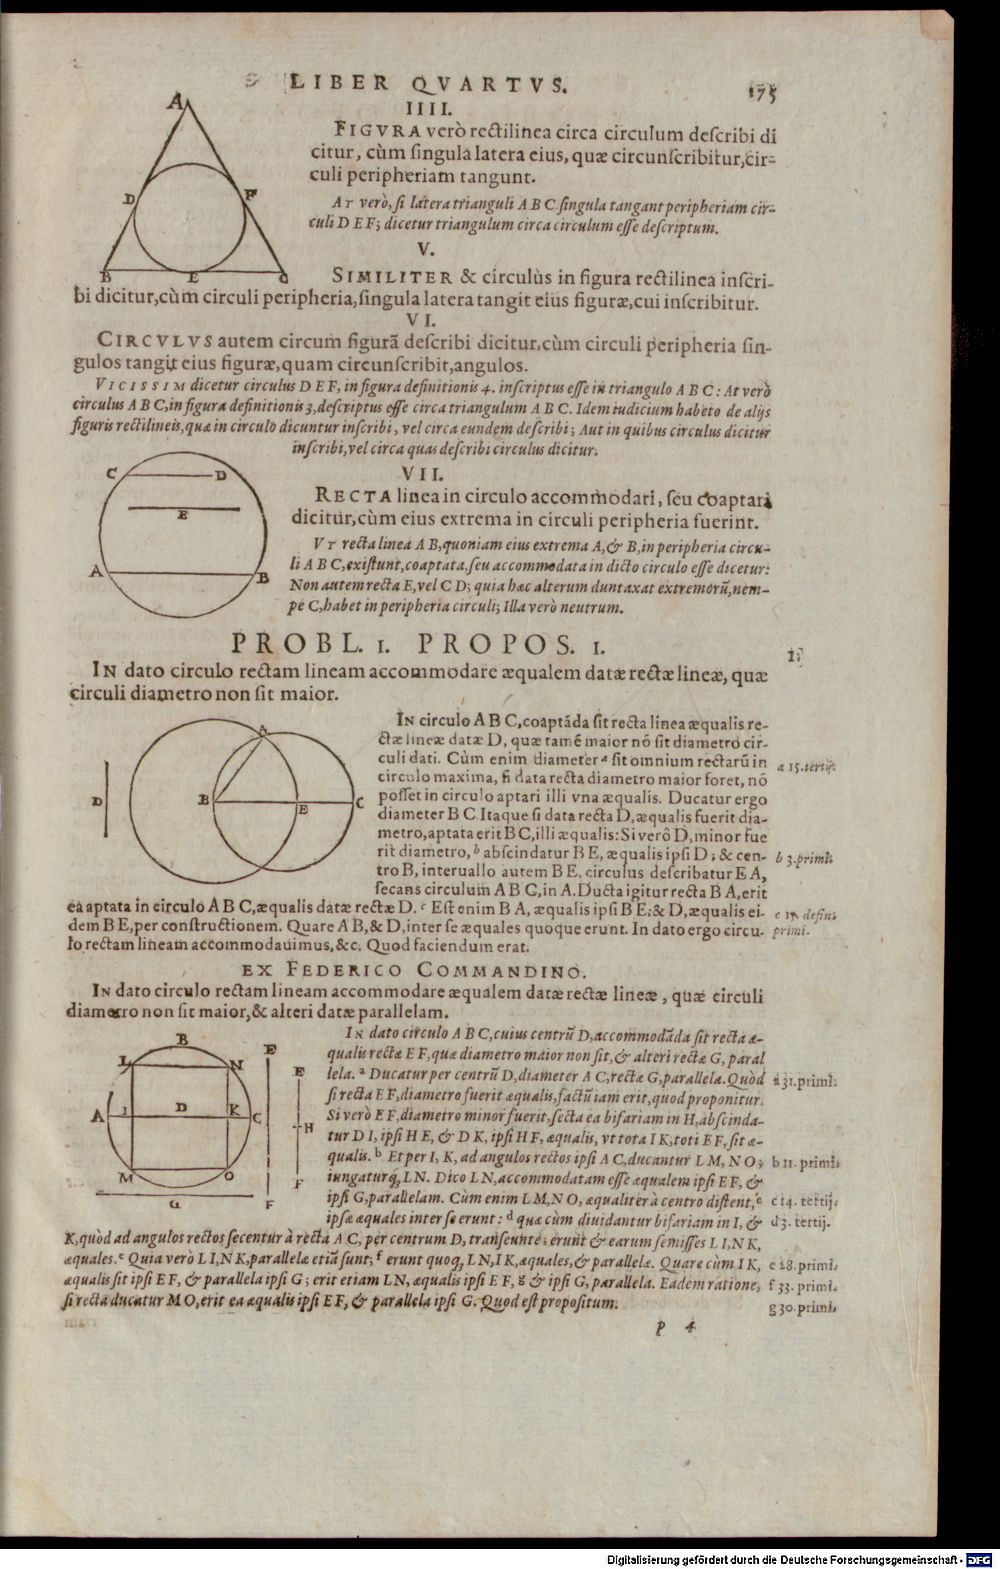 LIBER QVARTVS. 175
IIII.
FIGVRA verò rectilinea circa circulum deſcribi di
citur, cùm ſingula latera eius, quæ circunſcribitur, cir-
culi peripheriam tangunt.
AT verò, ſi latera trianguli A B C. ſingula tangant peripheriam cir-
culi D E F; dicetur triangulum circa circulum eſſe deſcriptum.
A
D
F
B
E
C
V.
SIMILITER & circulùs in figura rectilinea inſcri-
bi dicitur, cùm circuli peripheria, ſingula latera tangit eius figuræ, cui inſcribitur.
VI.
CIRCVLVS autem circum figurā deſcribi dicitur, cùm circuli peripheria ſin-
gulos tangit eius figuræ, quam circunſcribit, angulos.
VICISSIM dicetur circulus D E F, in figura definitionis 4. inſcriptus eſſe in triangulo A B C: At verò
circulus A B C, in figura definitionis 3, deſcriptus eſſe circa triangulum A B C. Idem iudicium habeto de alijs
figuris rectilineis, quæ in circulo dicuntur inſcribi, vel circa eundem deſcribi; Aut in quibus circulus dicitur
inſcribi, vel circa quas deſcribi circulus dicitur.
C
D
E
A
B
VII.
RECTA linea in circulo accommodari, ſeu coaptari
dicitur, cùm eius extrema in circuli peripheria fuerint.
VT recta linea A B, quoniam eius extrema A, & B, in peripheria circu-
li A B C, exiſtunt, coaptata, ſeu accommodata in dicto circulo eſſe dicetur:
Non autem recta E, vel C D; quia hæc alterum duntaxat extremorū, nem-
pe C, habet in peripheria circuli; Illa verò neutrum.
PROBL. 1. PROPOS. 1.
IN dato circulo rectam lineam accommodare æqualem datæ rectæ lineæ, quæ
circuli diametro non ſit maior.
A
D
B
E
C
IN circulo A B C, coaptāda ſit recta linea æqualis re-
ctæ lineæ datæ D, quæ tamē maior nō ſit diametro cir-
culi dati. Cùm enim diameter a ſit omnium rectarū in
circulo maxima, ſi data recta diametro maior foret, nō
poſſet in circulo aptari illi vna æqualis. Ducatur ergo
diameter B C. Itaque ſi data recta D, æqualis fuerit dia-
metro, aptata erit B C, illi æqualis: Si verô D, minor fue
rit diametro, b abſcindatur B E, æqualis ipſi D; & cen-
tro B, interuallo autem B E, circulus deſcribatur E A,
ſecans circulum A B C, in A. Ducta igitur recta B A, erit
ea aptata in circulo A B C, æqualis datæ rectæ D. c Eſt enim B A, æqualis ipſi B E; & D, æqualis ei-
dem B E, per conſtructionem. Quare A B, & D, inter ſe æquales quoque erunt. In dato ergo circu-
lo rectam lineam accommodauimus, &c. Quod faciendum erat.
a 15. tertij.
b 3. primi.
c 15. defin.
primi.
EX FEDERICO COMMANDINO.
IN dato circulo rectam lineam accommodare æqualem datæ rectæ lineæ, quæ circuli
diametro non ſit maior, & alteri datæ parallelam.
B
L
N
A
I
D
K
C
M
O
G
E
F
E
H
F
IN dato circulo A B C, cuius centrū D, accommodāda ſit recta æ-
qualis rectæ E F, quæ diametro maior non ſit, & alteri rectæ G, paral
lela. a Ducatur per centrū D, diameter A C, rectæ G, parallela. Quòd
ſi recta E F, diametro fuerit æqualis, factū iam erit, quod proponitur.
Si verò E F, diametro minor fuerit, ſecta ea bifariam in H, abſcinda-
tur D I, ipſi H E, & D K, ipſi H F, æqualis, vt tota I K, toti E F, ſit æ-
qualis. b Et per I, K, ad angulos rectos ipſi A C, ducantur L M, N O;
iungaturq́ꝫ L N. Dico L N, accommodatam eſſe æqualem ipſi E F, &
ipſi G, parallelam. Cùm enim L M, N O, æqualiter à centro diſtent, c
ipſæ æquales inter ſe erunt: d quæ cùm diuidantur bifariam in I, &
K, quòd ad angulos rectos ſecentur à rectā A C, per centrum D, tranſeunte; erunt & earum ſemiſſes L I, N K,
æquales. e Quia verò L I, N K, parallelæ etiā ſunt; f erunt quoqꝫ L N, I K, æquales, & parallelæ. Quare cùm I K,
æqualis ſit ipſi E F, & parallela ipſi G; erit etiam L N, æqualis ipſi E F, g & ipſi G, parallela. Eadem ratione,
ſi recta ducatur M O, erit ea æqualis ipſi E F, & parallela ipſi G. Quod eſt propoſitum.
a 31. primi.
b 11. primi.
c 14. tertij.
d 3. tertij.
e 28. primi.
f 33. primi.
g 30. primi.
P 4
Digitalisierung gefördert durch die Deutsche Forschungsgemeinschaft - DFG